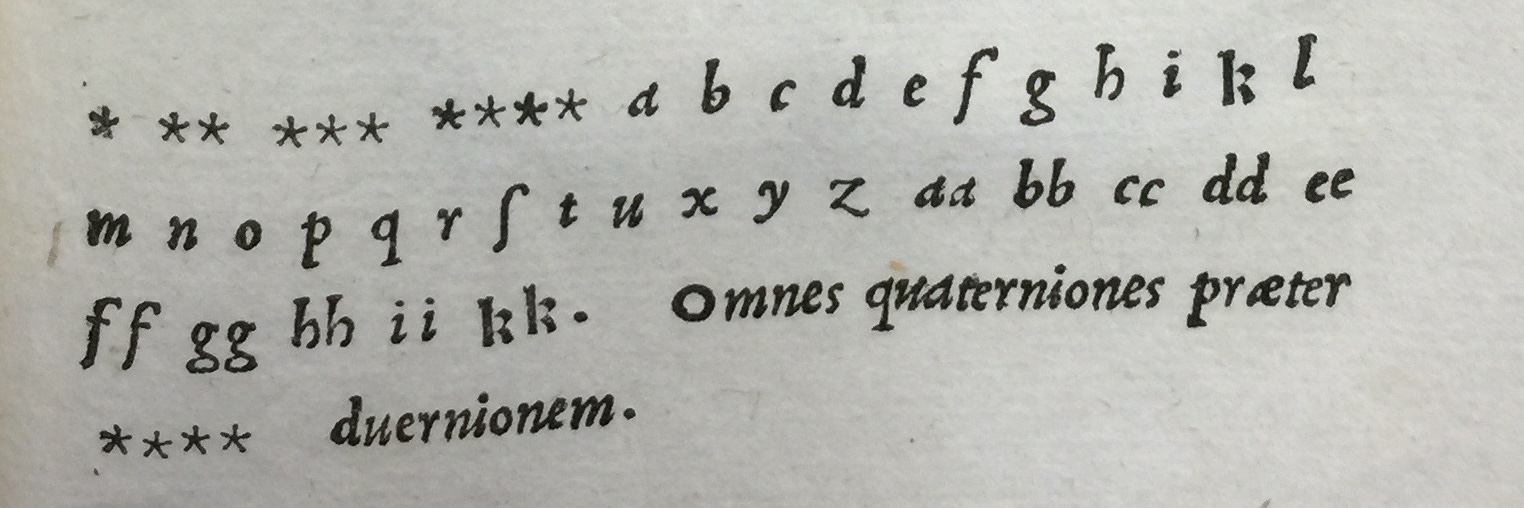 * ** *** **** a b c d e f g h i k l
m n o p q r ſ t u x y z aa bb cc dd ee
ff gg hh ii kk. Omnes quaterniones præter
**** duernionem.